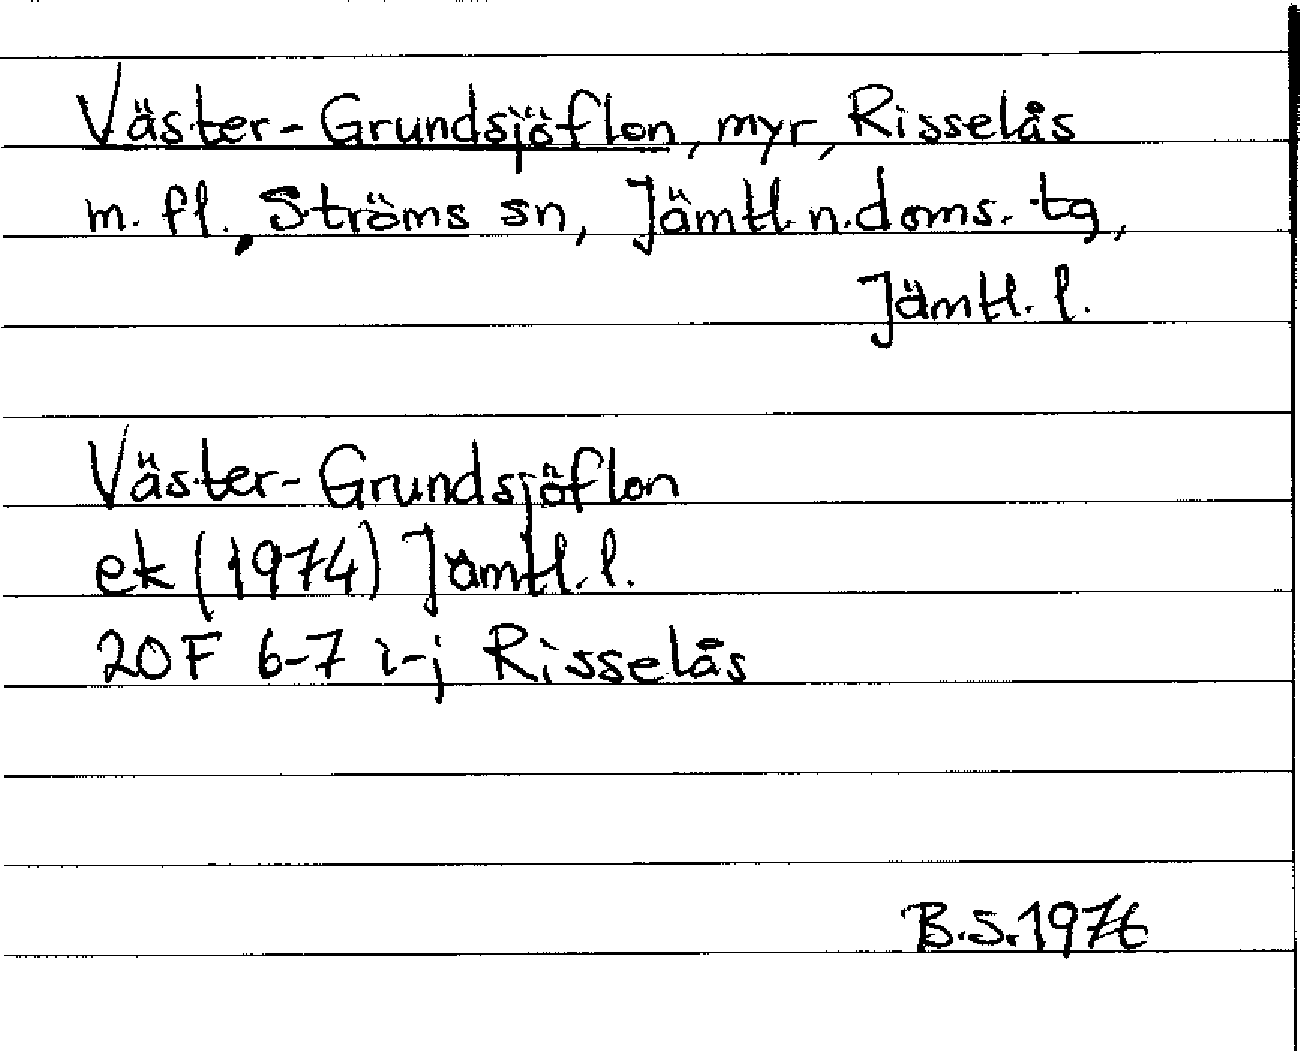 Väster-Grundsjöflon, myr, Risselås
m. fl., Ströms sn, Jämtl. n. doms. tg,
Jämtl. l.
Väster-Grundsjöflon
ek (1974) Jämtl. l.
20F 6-7 i-j Risselås
B.S. 1976